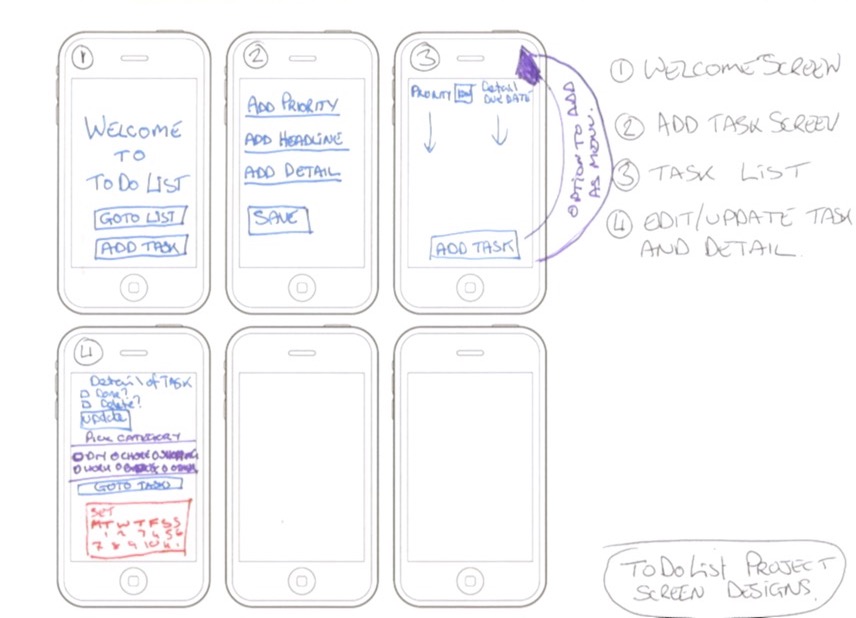 1
WELCOME
TO
TODO LIST
GOTO LIST
ADD TASK
2
ADD PRIORITY
ADD HEADLINE
ADD DETAIL
SAVE
3
PRIORITY
Detail
DUE DATE
ADD TASK
OPTION TO ADD
AS MENU.
1 WELCOME SCREEN
2 ADD TASK SCREEN
3 TASK LIST
4 EDIT/UPDATE TASK
AND DETAIL
4
Detail of TASK
Done?
Delete?
UPDATE
PICK CATEGORY
DIY CHORE SHOPPING
WORK
GOTO TASKS
SET
M T W T F S S
TODO LIST PROJECT
SCREEN DESIGNS.